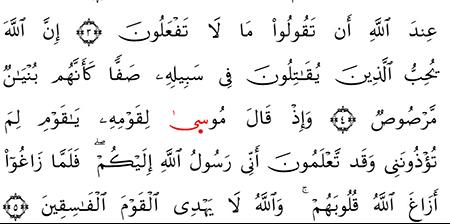 عِندَ اللَّهِ أَن تَقُولُوا۟ مَا لَا تَفْعَلُونَ ﴿٣﴾ إِنَّ اللَّهَ
يُحِبُّ الَّذِينَ يُقَـٰتِلُونَ فِى سَبِيلِهِۦ صَفًّا كَأَنَّهُم بُنْيَـٰنٌ
مَّرْصُوصٌ ﴿٤﴾ وَإِذْ قَالَ مُوسَىٰ لِقَوْمِهِۦ يَـٰقَوْمِ لِمَ
تُؤْذُونَنِى وَقَد تَّعْلَمُونَ أَنِّى رَسُولُ اللَّهِ إِلَيْكُمْ ۖ فَلَمَّا زَاغُوٓا۟
أَزَاغَ اللَّهُ قُلُوبَهُمْ ۚ وَاللَّهُ لَا يَهْدِى الْقَوْمَ الْفَـٰسِقِينَ ﴿٥﴾